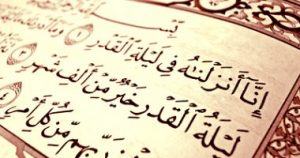 بِسْمِ
إِنَّا أَنزَلْنَٰهُ فِى لَيْلَةِ ٱلْقَدْرِ ١ وَمَا أَدْر
لَيْلَةُ ٱلْقَدْرِ خَيْرٌ مِّنْ أَلْفِ شَهْرٍ ٣
رَبِّهِم مِّن كُلِّ أَمْرٍ